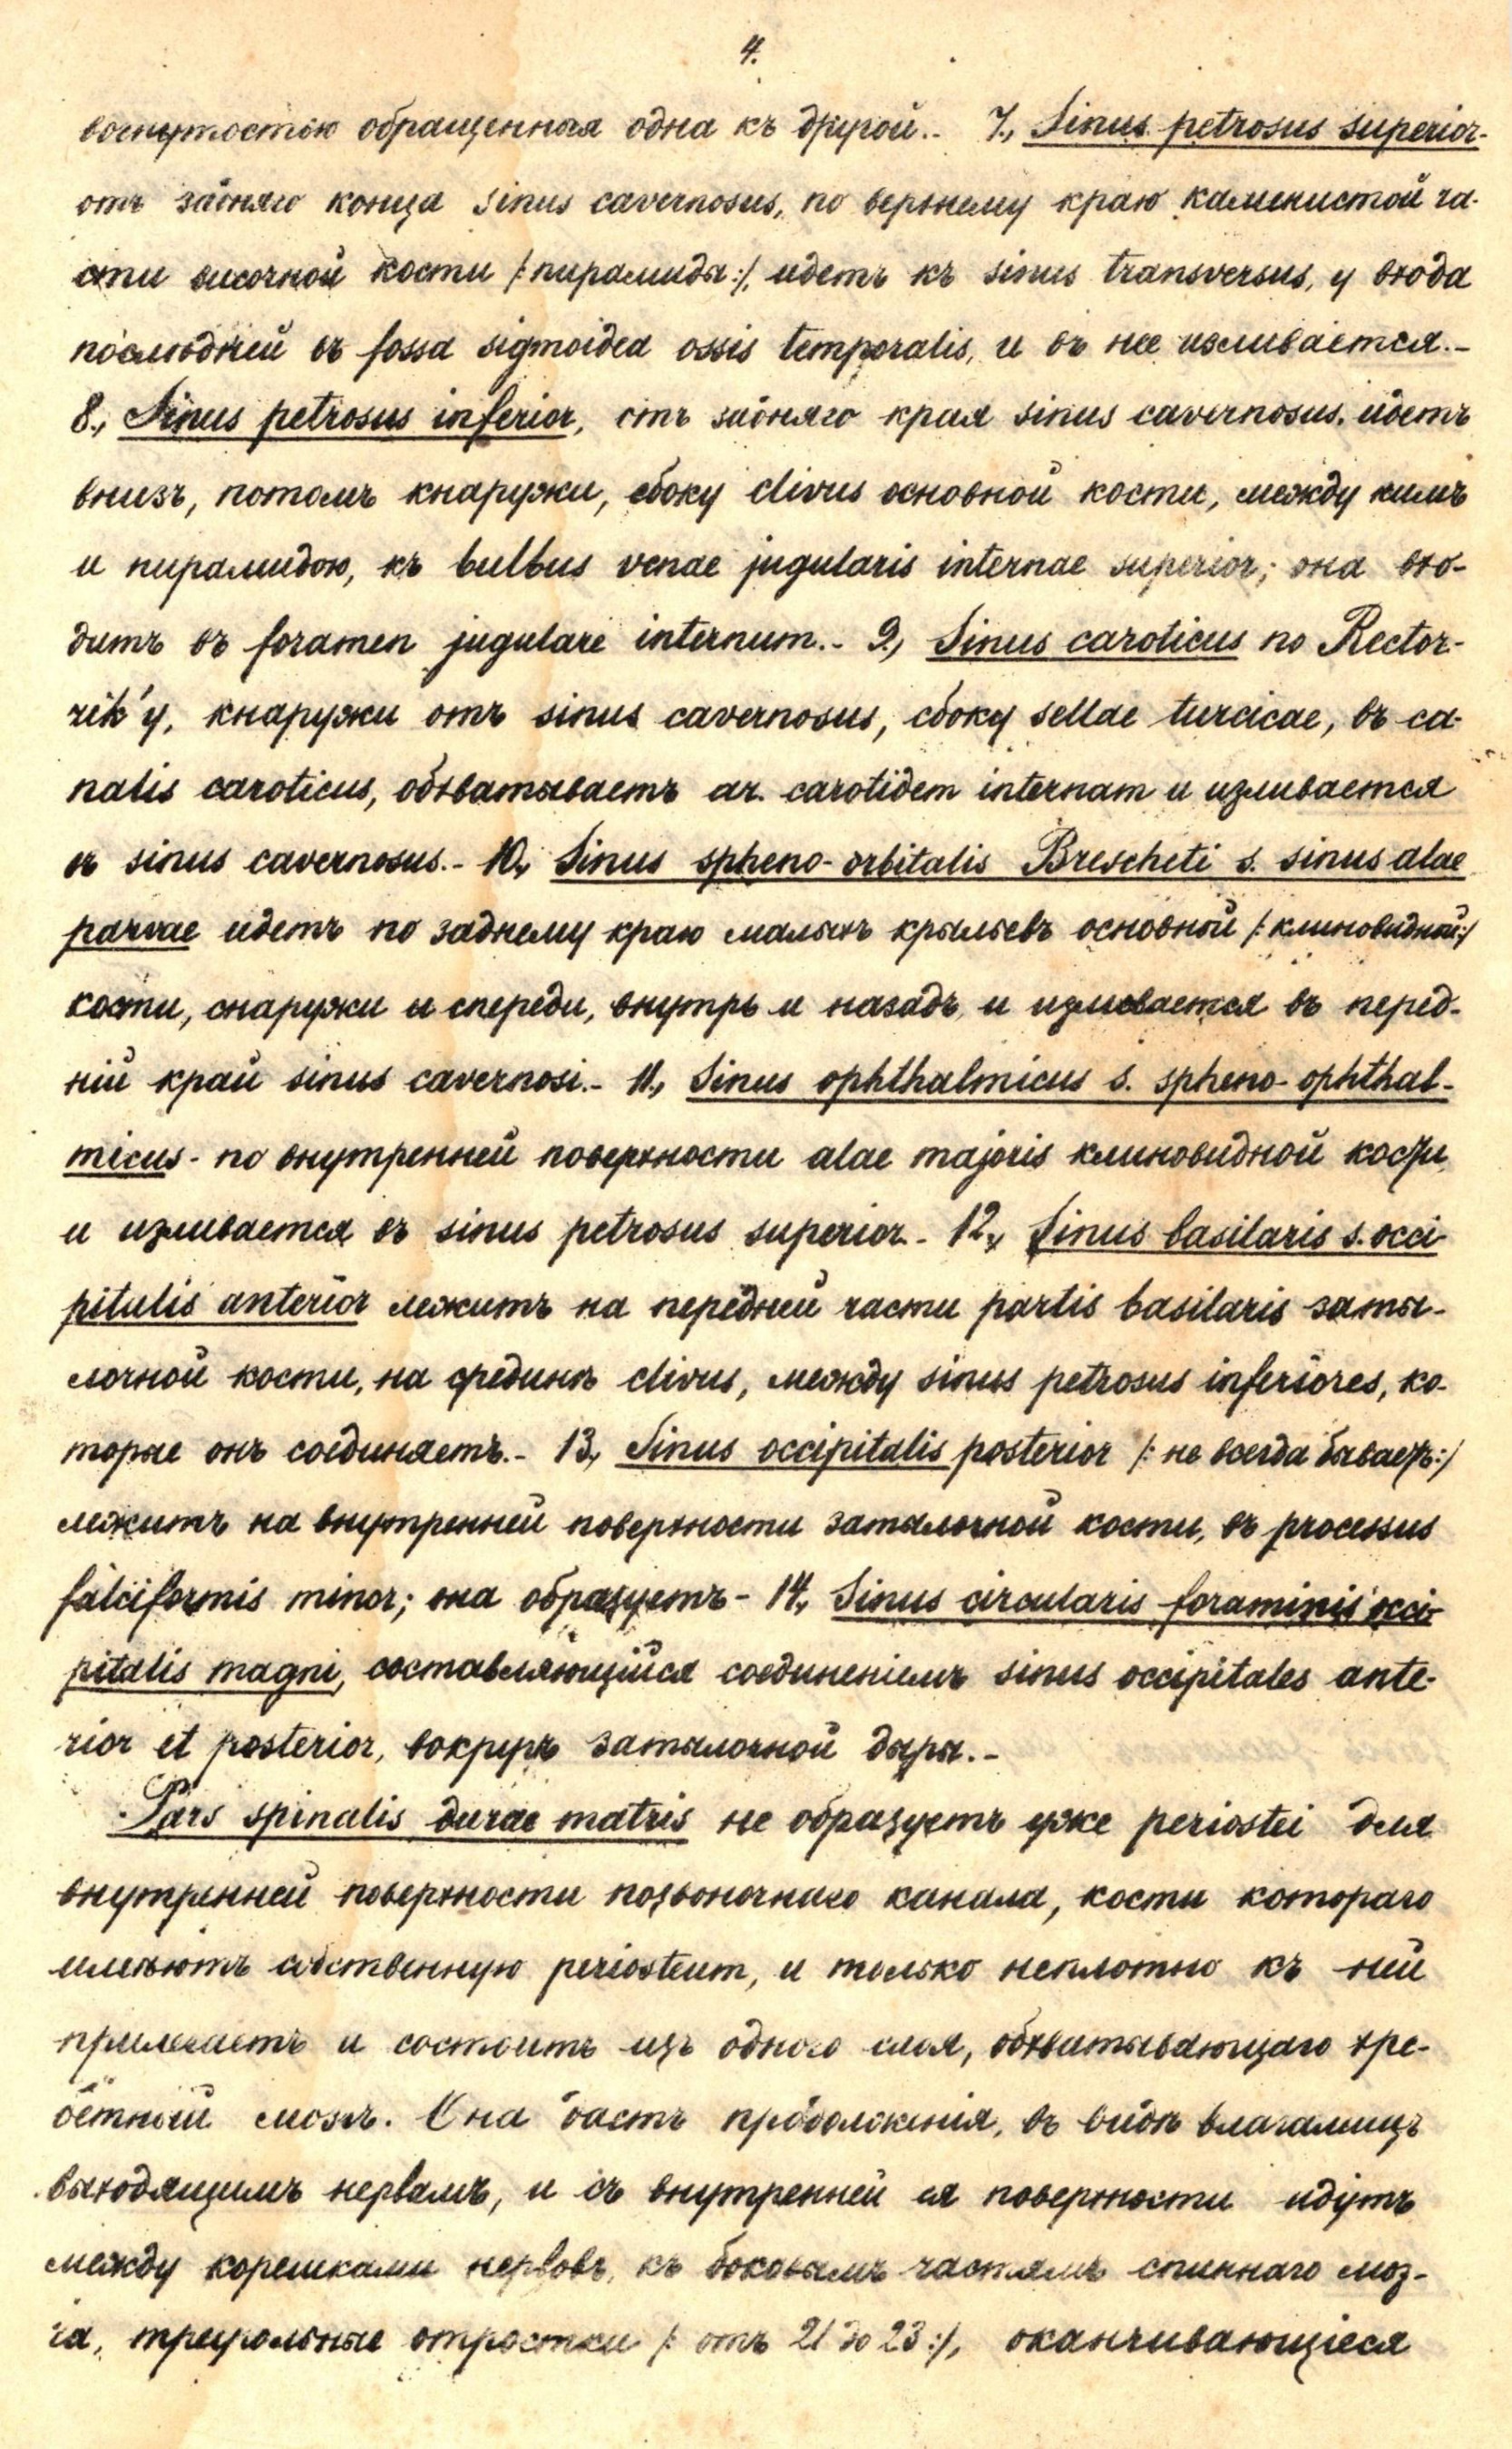 4.
вогнутостью обращенныя одна къ другой.- 7., Sinus petrosus superior-
отъ задняго конца sinus cavernosus, по верхнему краю каменистой ча-
сти височной кости /:пирамида:/, идетъ къ sinus transversus, у входа
послѣдней въ fossa sigmoidea ossis temporalis, и въ нее изливается.-
8., Sinus petrosus inferior, отъ задняго края sinus cavernosus, идетъ
внизъ, потомъ кнаружи, сбоку clivus основной кости, между нимъ
и пирамидою, къ bulbus venae jugularis internae superior; она вхо-
дитъ въ foramen jugulare internum.- 9., Sinus caroticus по Rector-
zik'у, кнаружи отъ sinus cavernosus, сбоку sellae turcicae, въ ca-
nalis caroticus, обхватываетъ ar. carotidem internam и изливается
въ sinus cavernosus.- 10., Sinus spheno-orbitalis Brescheti s. sinus alae
parvae идетъ по заднему краю малыхъ крыльевъ основной /:клиновидной:/
кости, снаружи и спереди, внутрь и назадъ, и изливается въ перед-
ній край sinus cavernosi.- 11., Sinus ophthalmicus s. spheno-ophthal-
micus- по внутренней поверхности alae majoris клиновидной кости,
и изливается въ sinus petrosus superior.- 12., Sinus basilaris s. occi-
pitulis anterior лежитъ на передней части partis basilaris заты-
лочной кости, на срединѣ clivus, между sinus petrosus inferiores, ко-
торые онъ соединяетъ.- 13., Sinus occipitalis posterior /:не всегда бываетъ:/
лежитъ на внутренней поверхности затылочной кости, въ processus
falciformis minor; она образуетъ- 14., Sinus circularis foraminis occi-
pitalis magni, составляющійся соединеніемъ sinus occipitales ante-
rior et posterior, вокругъ затылочной дыры.-
Pars spinalis durae matris не образуетъ уже periostei для
внутренней поверхности позвоночнаго канала, кости котораго
имѣютъ собственную periosteum, и только неплотно къ ней
прилегаетъ и состоитъ изъ одного слоя, обхватывающаго хре-
бетный мозгъ. Она даетъ продолженія, въ видѣ влагалищъ
выходящимъ нервамъ, и съ внутренней ея поверхности идутъ
между корешками нервовъ, къ боковымъ частямъ спиннаго моз-
га, треугольные отростки /:отъ 21 до 23:/, оканчивающіеся